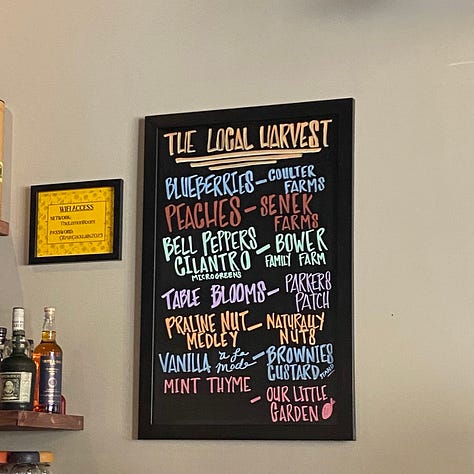 THE LOCAL HARVEST
BLUEBERRIES – COULTER FARMS
PEACHES – SENEK FARMS
BELL PEPPERS
CILANTRO – BOWER FAMILY FARM
MICROGREENS
TABLE BLOOMS – PARKERS PATCH
PRALINE NUT MEDLEY – NATURALLY NUTS
VANILLA a la mode – BROWNIES CUSTARD
MINT THYME – OUR LITTLE GARDEN
WIFI ACCESS
NETWORK:
PASSWORD: